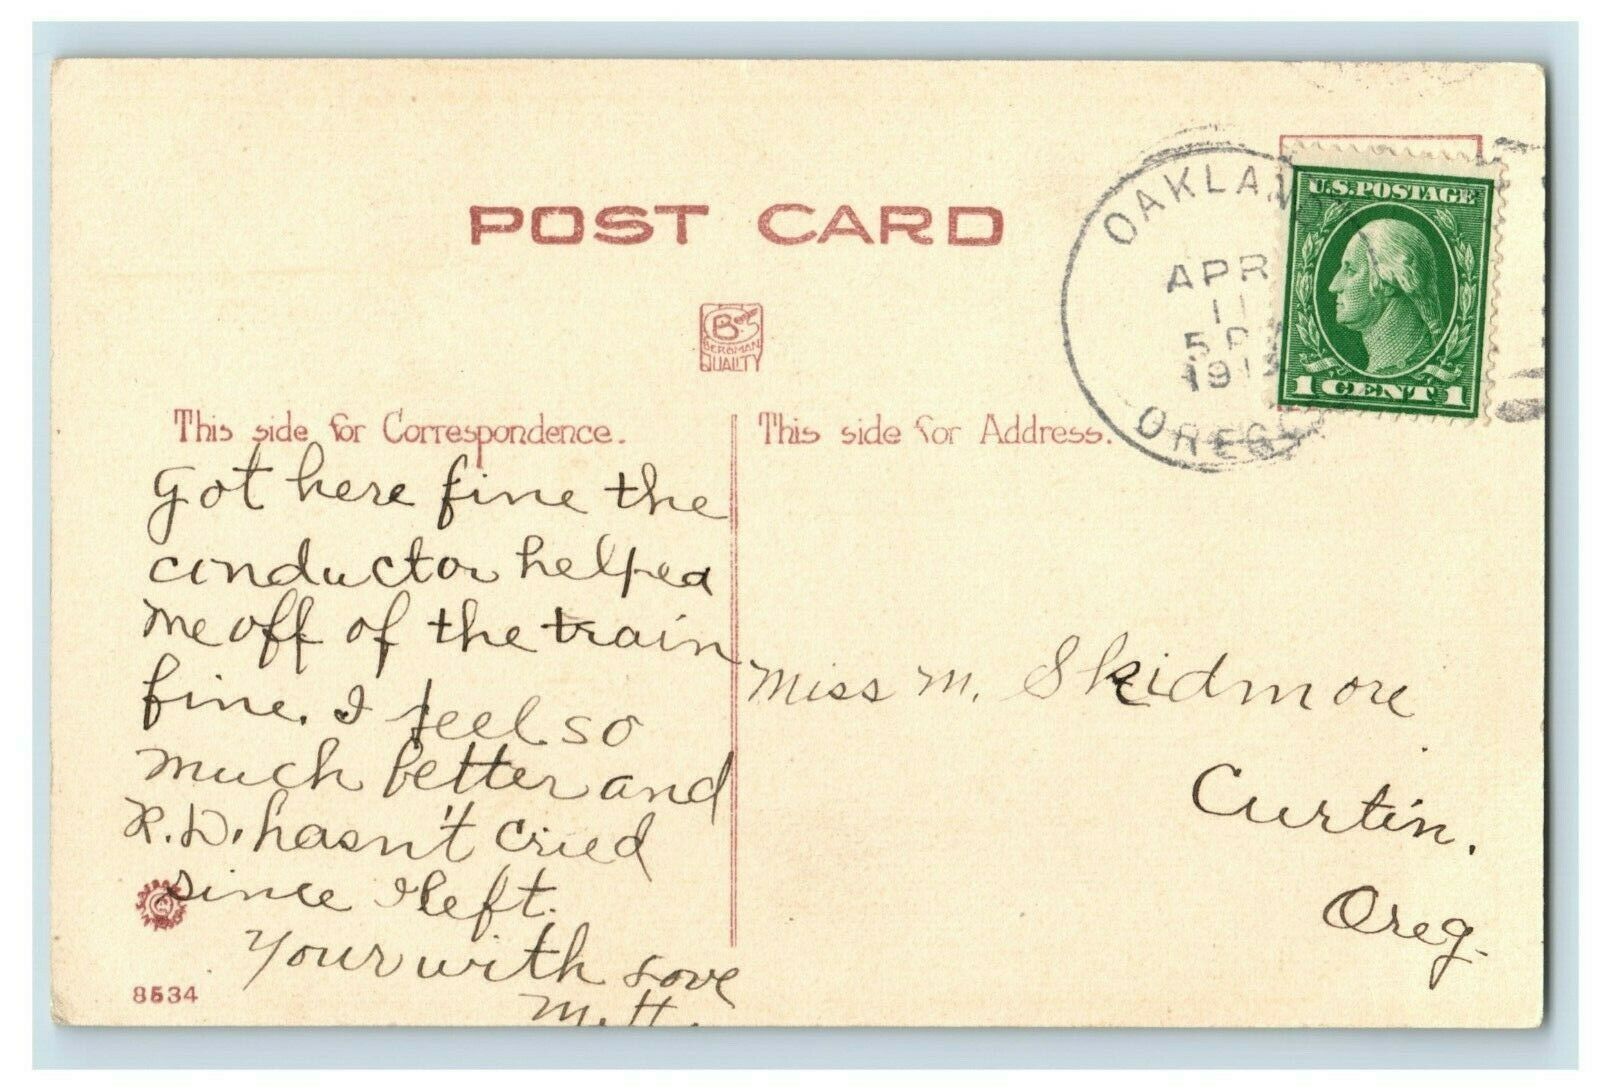 POST CARD
BS
BERGMAN
QUALITY
OAKLAND
APR
11
5 P
191
OREG
U.S. POSTAGE
1 CENT 1
This side for Correspondence.
This side for Address.
Got here fine the
conductor helped
me off of the train
fine. I feel so
much better and
R.D. hasn't cried
since I left.
Your with love
M.H.
Miss M. Skidmore
Curtin.
Oreg.
8534